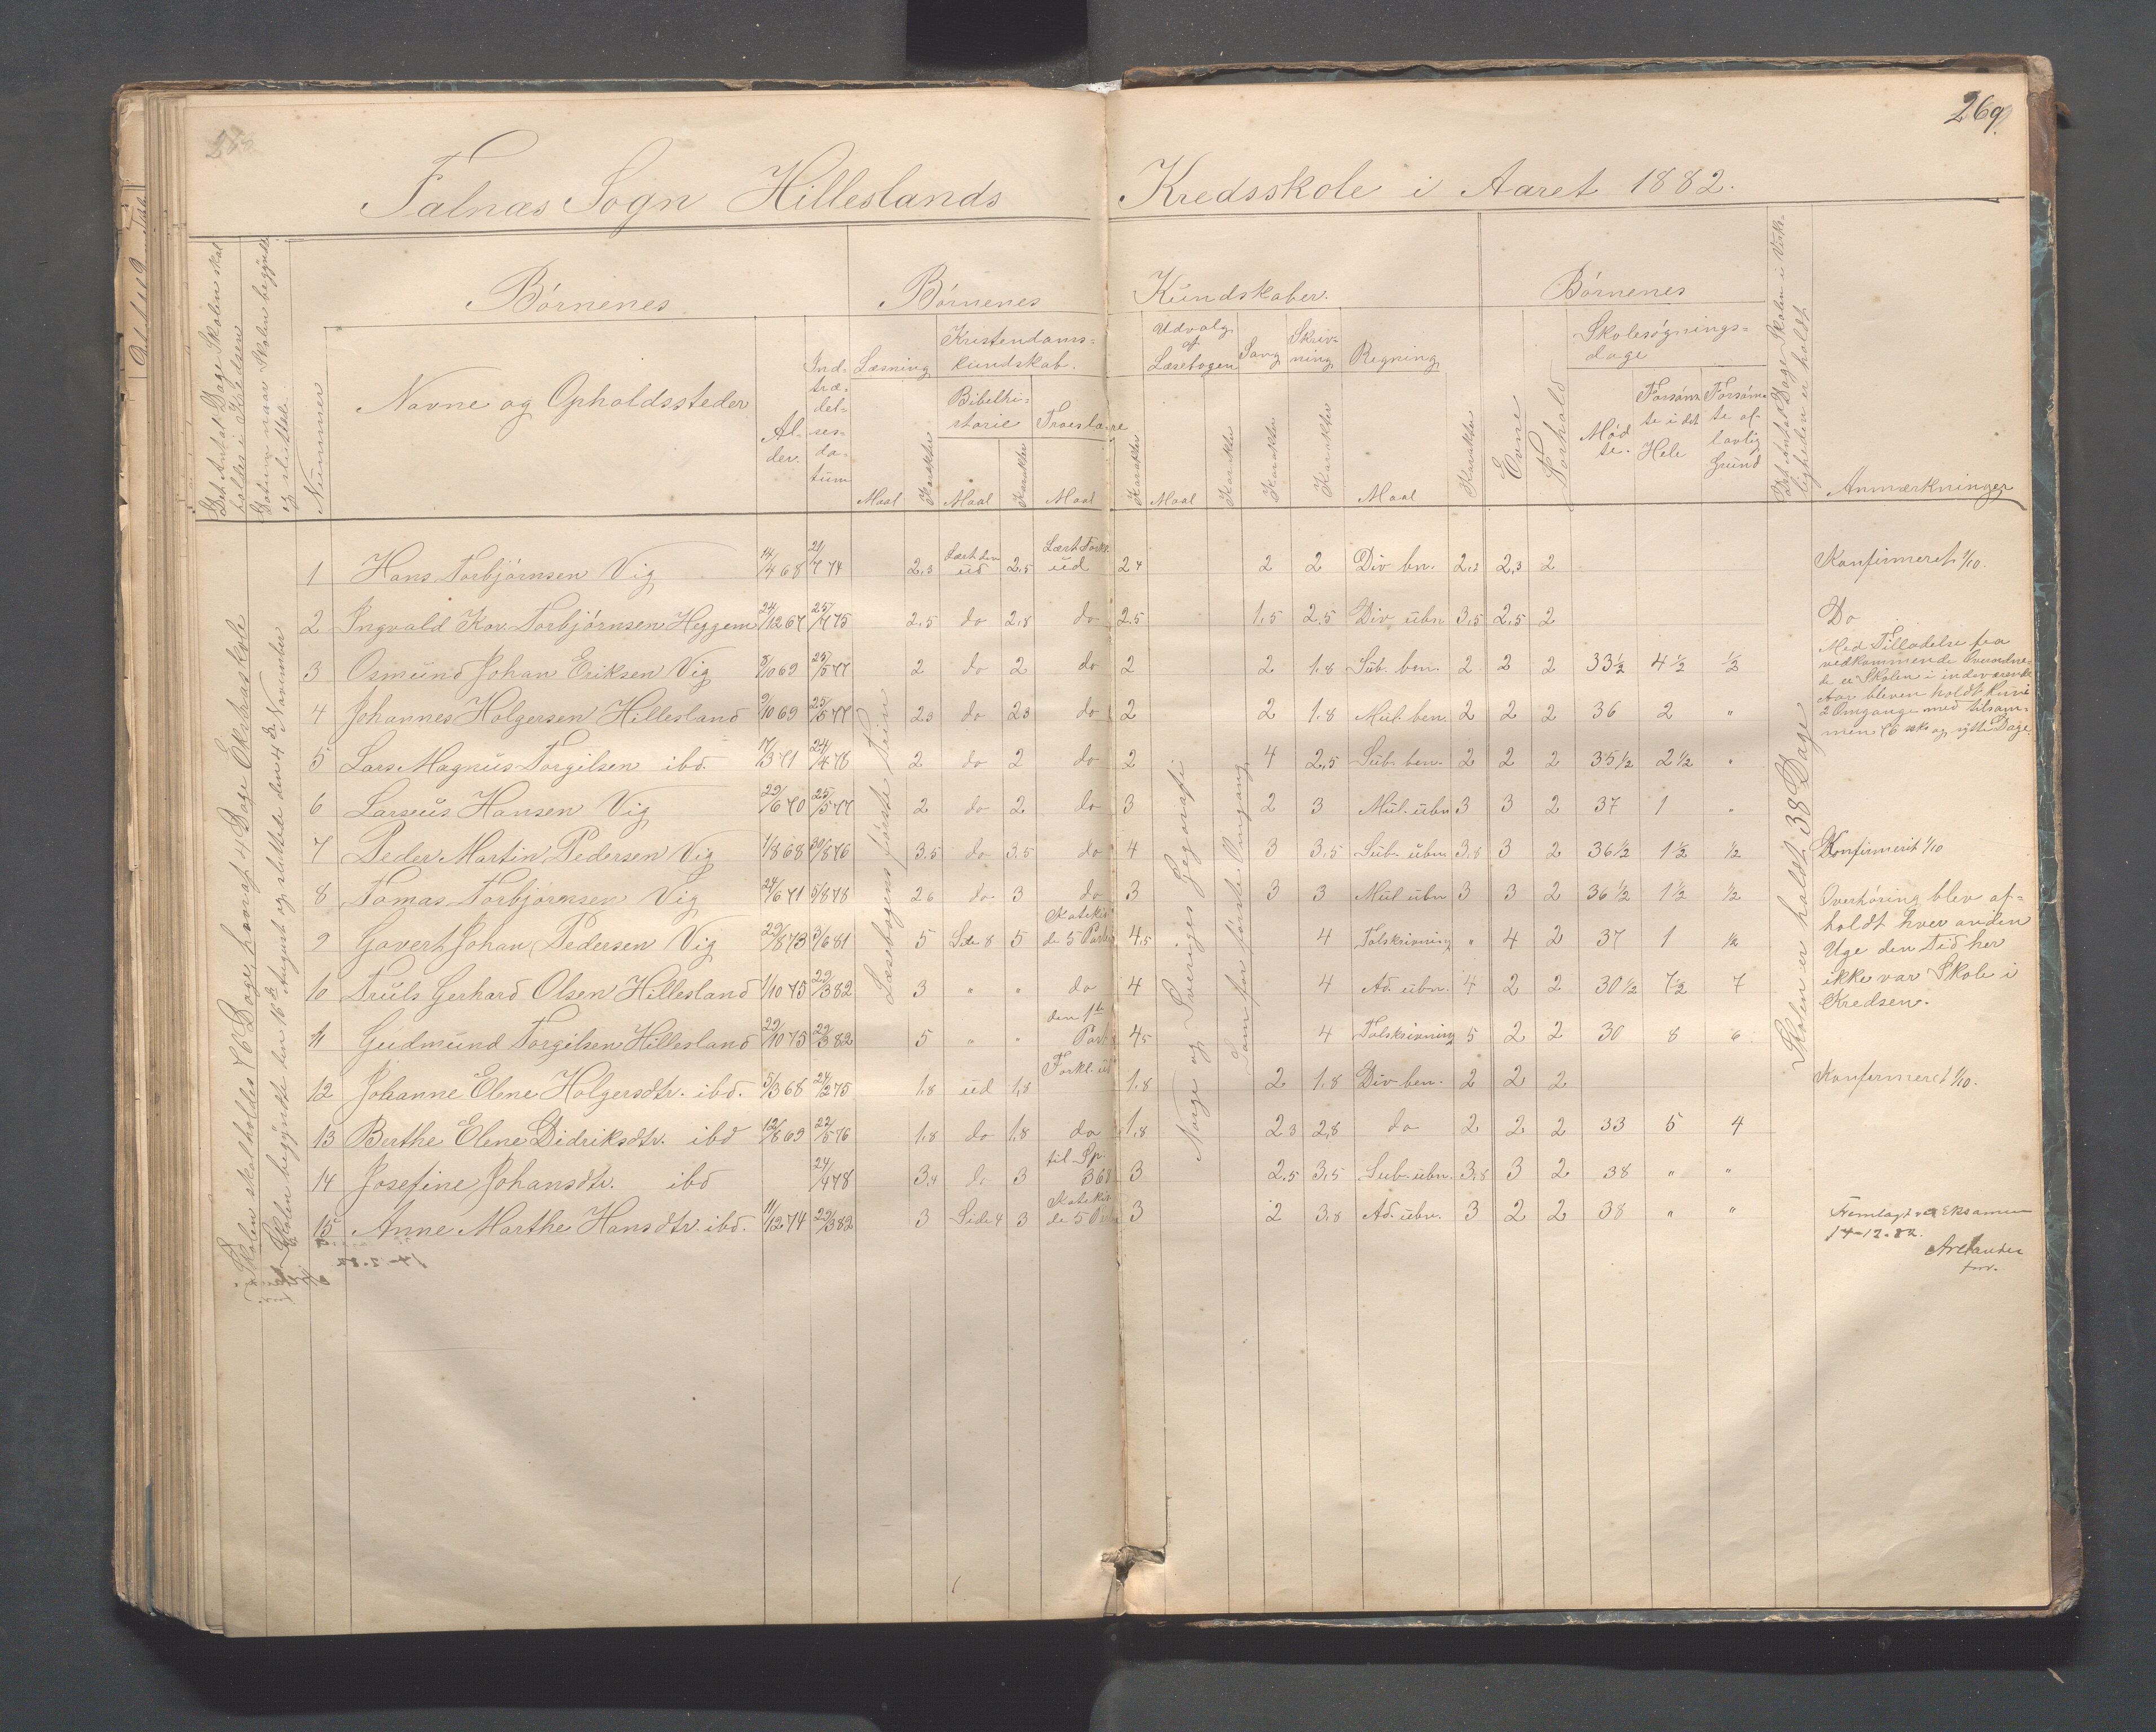 269.
Falnæs Sogn Hilleslands Kredsskole i Aaret 1882.
Det Antal Dage Skolen skal holdes i Kredsen
Datum naar Skolen begyndte og sluttede
Nummer
Børnenes
Navne og Opholdssteder
Alder.
Indtrædelsesdatum
Børnenes Kundskaber.
Læsning
Maal
Karakter
Kristendomskundskab.
Bibelhistorie
Maal
Karakter
Troeslære
Maal
Karakter
Udvalg af Læsebogen
Maal
Karakter
Sang
Karakter
Skrivning
Karakter
Regning
Maal
Karakter
Børnenes
Evne
Forhold
Skolesøgningsdage
Mødte.
Forsømte i det Hele
Forsømte af lovlig Grund
Det Antal Dage Skolen i Virkeligheden er holdt
Anmærkninger
Skolen skal holdes 76 Dage, hvoraf 4 Dage Ekstraskole
Skolen begyndte den 16de August og sluttede den 4de November
Læsebogens første Trin
Norge og Sveriges Geografi
Som for første Omgang
Skolen er holdt 38 Dage
1 Hans Torbjørnsen Vig 14/4 68 21/7 74 2,3 Lært den ud 2,5 Lært Forkl. ud 2 4 2 2 Div bn. 2,2 2,3 2 Konfirmeret 1/10.
2 Ingvald Kor. Torbjørnsen Heggem 24/12 67 25/7 75 2,5 do 2,8 do 2,5 1,5 2,5 Div ubn 3,5 2,5 2 Do
3 Osmund Johan Eriksen Vig 25/5 77 2 do 2 do 2 2 1,8 Sub. ben. 2 2 2 33½ 4½ ½
4 Johannes Holgersen Hillesland 9/10 69 25/5 77 2,3 do 2,3 do 2 2 1,8 Mul. ben. 2 2 2 36 2 "
5 Lars Magnus Torgilsen ibd. 17/3 71 24/4 78 2 do 2 do 2 4 2,5 Sub. ben. 2 2 2 35½ 2½ "
6 Larseus Hansen Vig 29/6 70 25/5 77 2 do 2 do 3 2 3 Mul. ubn 3 3 2 37 1 "
7 Peder Martin Pedersen Vig 1/8 68 30/8 76 3,5 do 3,5 do 4 3 3,5 Sub. ubn 3,8 3 2 36½ 1½ ½ Konfirmeret 1/10
8 Tomas Torbjørnsen Vig 24/6 71 5/8 78 2 6 do 3 do 3 3 3 Mul ubn 3 3 2 36½ 1½ ½
9 Govert Johan Pedersen Vig 29/8 73 3/6 81 5 Side 8 5 Katekis de 5 Parter 4,5 4 Talskrivning " 4 2 37 1 ½
10 Truls Gerhard Olsen Hillesland 1/10 75 22/3 82 3 " " do 4 4 Ad. ubn. 4 2 2 30½ 7½ 7
11 Gudmund Torgilsen Hillesland 29/10 75 22/3 82 5 " " den 1ste Part 4 5 4 Talskrivning 5 2 2 30 8 6
12 Johanne Elene Holgersdtr. ibd. 5/3 68 24/2 75 1,8 ud 1,8 Forkl. ud 1,8 2 1,8 Div ben. 2 2 2 Konfirmeret 1/10.
13 Berthe Elene Didriksdtr. ibd 12/8 69 22/5 76 1,8 do 1,8 do 1,8 2 3 2,8 do 2 2 2 33 5 4
14 Josefine Johansdtr. ibd 24/4 78 3,4 do 3 til Sp. 368 3 2,5 3,5 Sub. ubn. 3,8 3 2 38 " "
15 Anne Marthe Hansdtr. ibd. 11/12 74 22/3 82 3 Side 4 3 Katekis de 5 Parter 3 2 3,8 Ad. ubn. 3 2 2 38 " "
Med Tilladelse fra
vedkommende Overordne-
de er Skolen i indeværende
Aar bleven holdt kun i
2 Omgange med tilsam-
men 76 seks og sytti Dage.
Overhøring blev af-
holdt hver anden
Uge den Tid her
ikke var Skole i
Kredsen.
Fremlagt ved Eksamen
14-12-82.